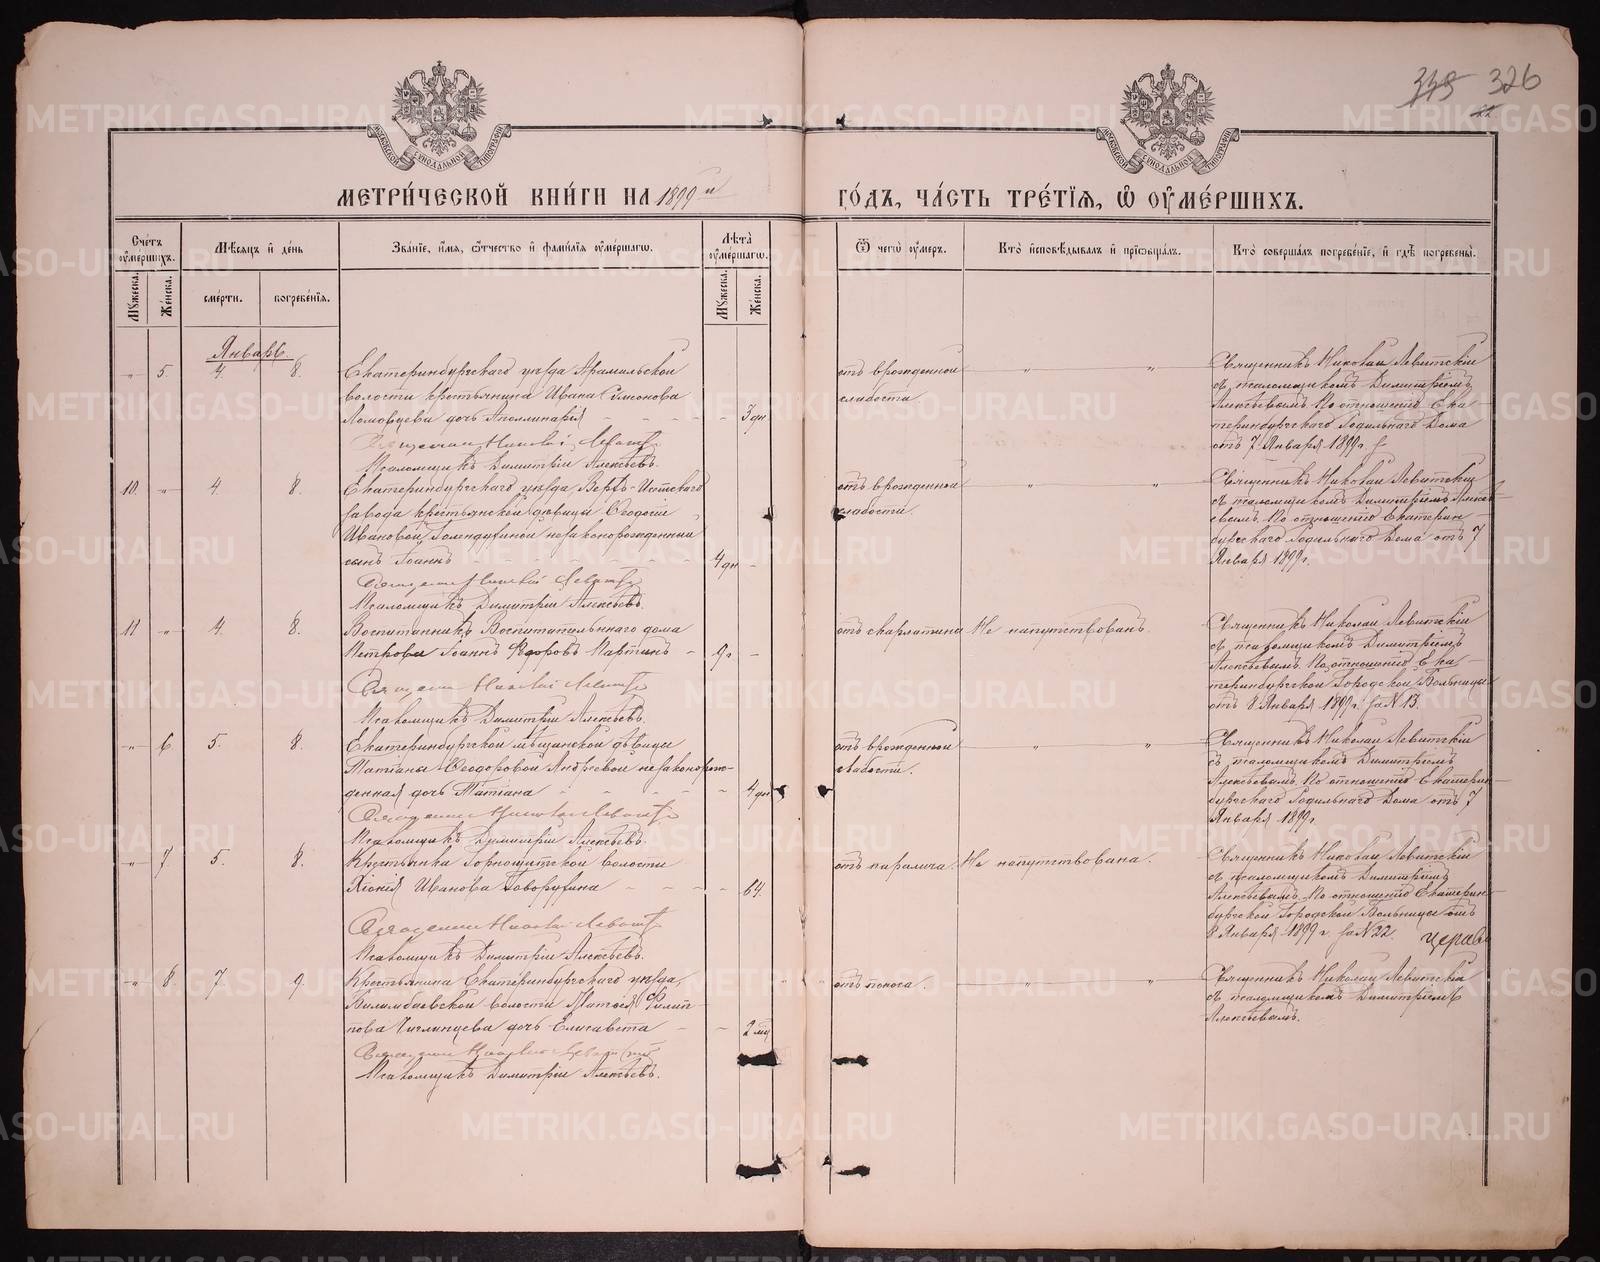 338 326
МЕТРИ́ЧЕСКОЙ КНИ́ГИ НА 1899 й
ГО́ДЪ, ЧА́СТЬ ТРЕ́ТІЯ, Ѽ ОУМЕ́РШИХЪ.
Сче́тъ оуме́ршихъ.
Му́жеска.
Же́нска.
Мѣ́сяцъ и де́нь
сме́рти.
погребе́нія.
Зва́ніе, и́мя, о́тчество и фами́лія оуме́ршагѡ.
Лѣ́та оуме́ршагѡ.
Му́жеска.
Же́нска.
Ѿ чегѡ̀ оу́меръ.
Кто̀ и҆сповѣ́дывалъ и҆ приѡбща́лъ.
Кто̀ соверша́лъ погребе́ніе, и҆ гдѣ̀ погребены̀.
Январь.
„ 5 4. 8.
Екатеринбургскаго уѣзда Арамильской
волости крестьянина Ивана Симонова
дочь Аполлинарія - - 3 дн
Священникъ Николай Левитскій
Псаломщикъ Димитрій Алексѣевъ.
отъ врожденной
слабости.
Священникъ Николай Левитскій
съ псаломщикомъ Димитріемъ
Алексѣевымъ. По отношенію Ека-
теринбургскаго Родильнаго Дома
отъ 7 Января 1899 г.
10. „ 4. 8.
Екатеринбургскаго уѣзда, Верхъ-Исетскаго
завода крестьянской дѣвицы Ѳедосіи
Ивановой незаконорожденный
сынъ Іоаннъ - - 4 дн -
Священникъ Николай Левитскій
Псаломщикъ Димитрій Алексѣевъ.
отъ врожденной
слабости.
Священникъ Николай Левитскій
съ псаломщикомъ Димитріемъ Алексѣ-
евымъ. По отношенію Екатерин-
бургскаго Родильнаго Дома отъ 7
Января 1899 г.
11 „ 4. 8.
Воспитанникъ Воспитательнаго дома
Петрова Іоаннъ Ѳедоровъ Мартинъ - 9 г -
Священникъ Николай Левитскій
Псаломщикъ Димитрій Алексѣевъ.
отъ скарлатина
Не напутствованъ.
Священникъ Николай Левитскій
съ псаломщикомъ Димитріемъ
Алексѣевымъ. По отношенію Ека-
теринбургской Городской Больницы
отъ 8 Января 1899 г. за № 13.
„ 6 5. 8.
Екатеринбургской мѣщанской дѣвицы
Татіаны Ѳеодоровой Андреевой незаконорож-
денная дочь Татіана - - 4 дн
Священникъ Николай Левитскій
Псаломщикъ Димитрій Алексѣевъ.
отъ врожденной
слабости.
Священникъ Николай Левитскій
съ псаломщикомъ Димитріемъ
Алексѣевымъ. По отношенію Екатерин-
бургскаго Родильнаго Дома отъ 7
Января 1899 г.
„ 7 5. 8.
Крестьянка Горнощитской волости
Хіонія Иванова Говорухина - - 64
Священникъ Николай Левитскій
Псаломщикъ Димитрій Алексѣевъ.
отъ паралича.
Не напутствована.
Священникъ Николай Левитскій
съ псаломщикомъ Димитріемъ
Алексѣевымъ. По отношенію Екатерин-
бургской Городской Больницы отъ
8 Января 1899 г. за № 22.
„ 8 7 9.
Крестьянина Екатеринбургскаго уѣзда,
Билимбаевской волости Матвѣя Филип-
пова дочь Елисавета - - 2 мц
Священникъ Николай Левитскій
Псаломщикъ Димитрій Алексѣевъ.
отъ поноса.
Священникъ Николай Левитскій
съ псаломщикомъ Димитріемъ
Алексѣевымъ.
METRIKI.GASO-URAL.RU